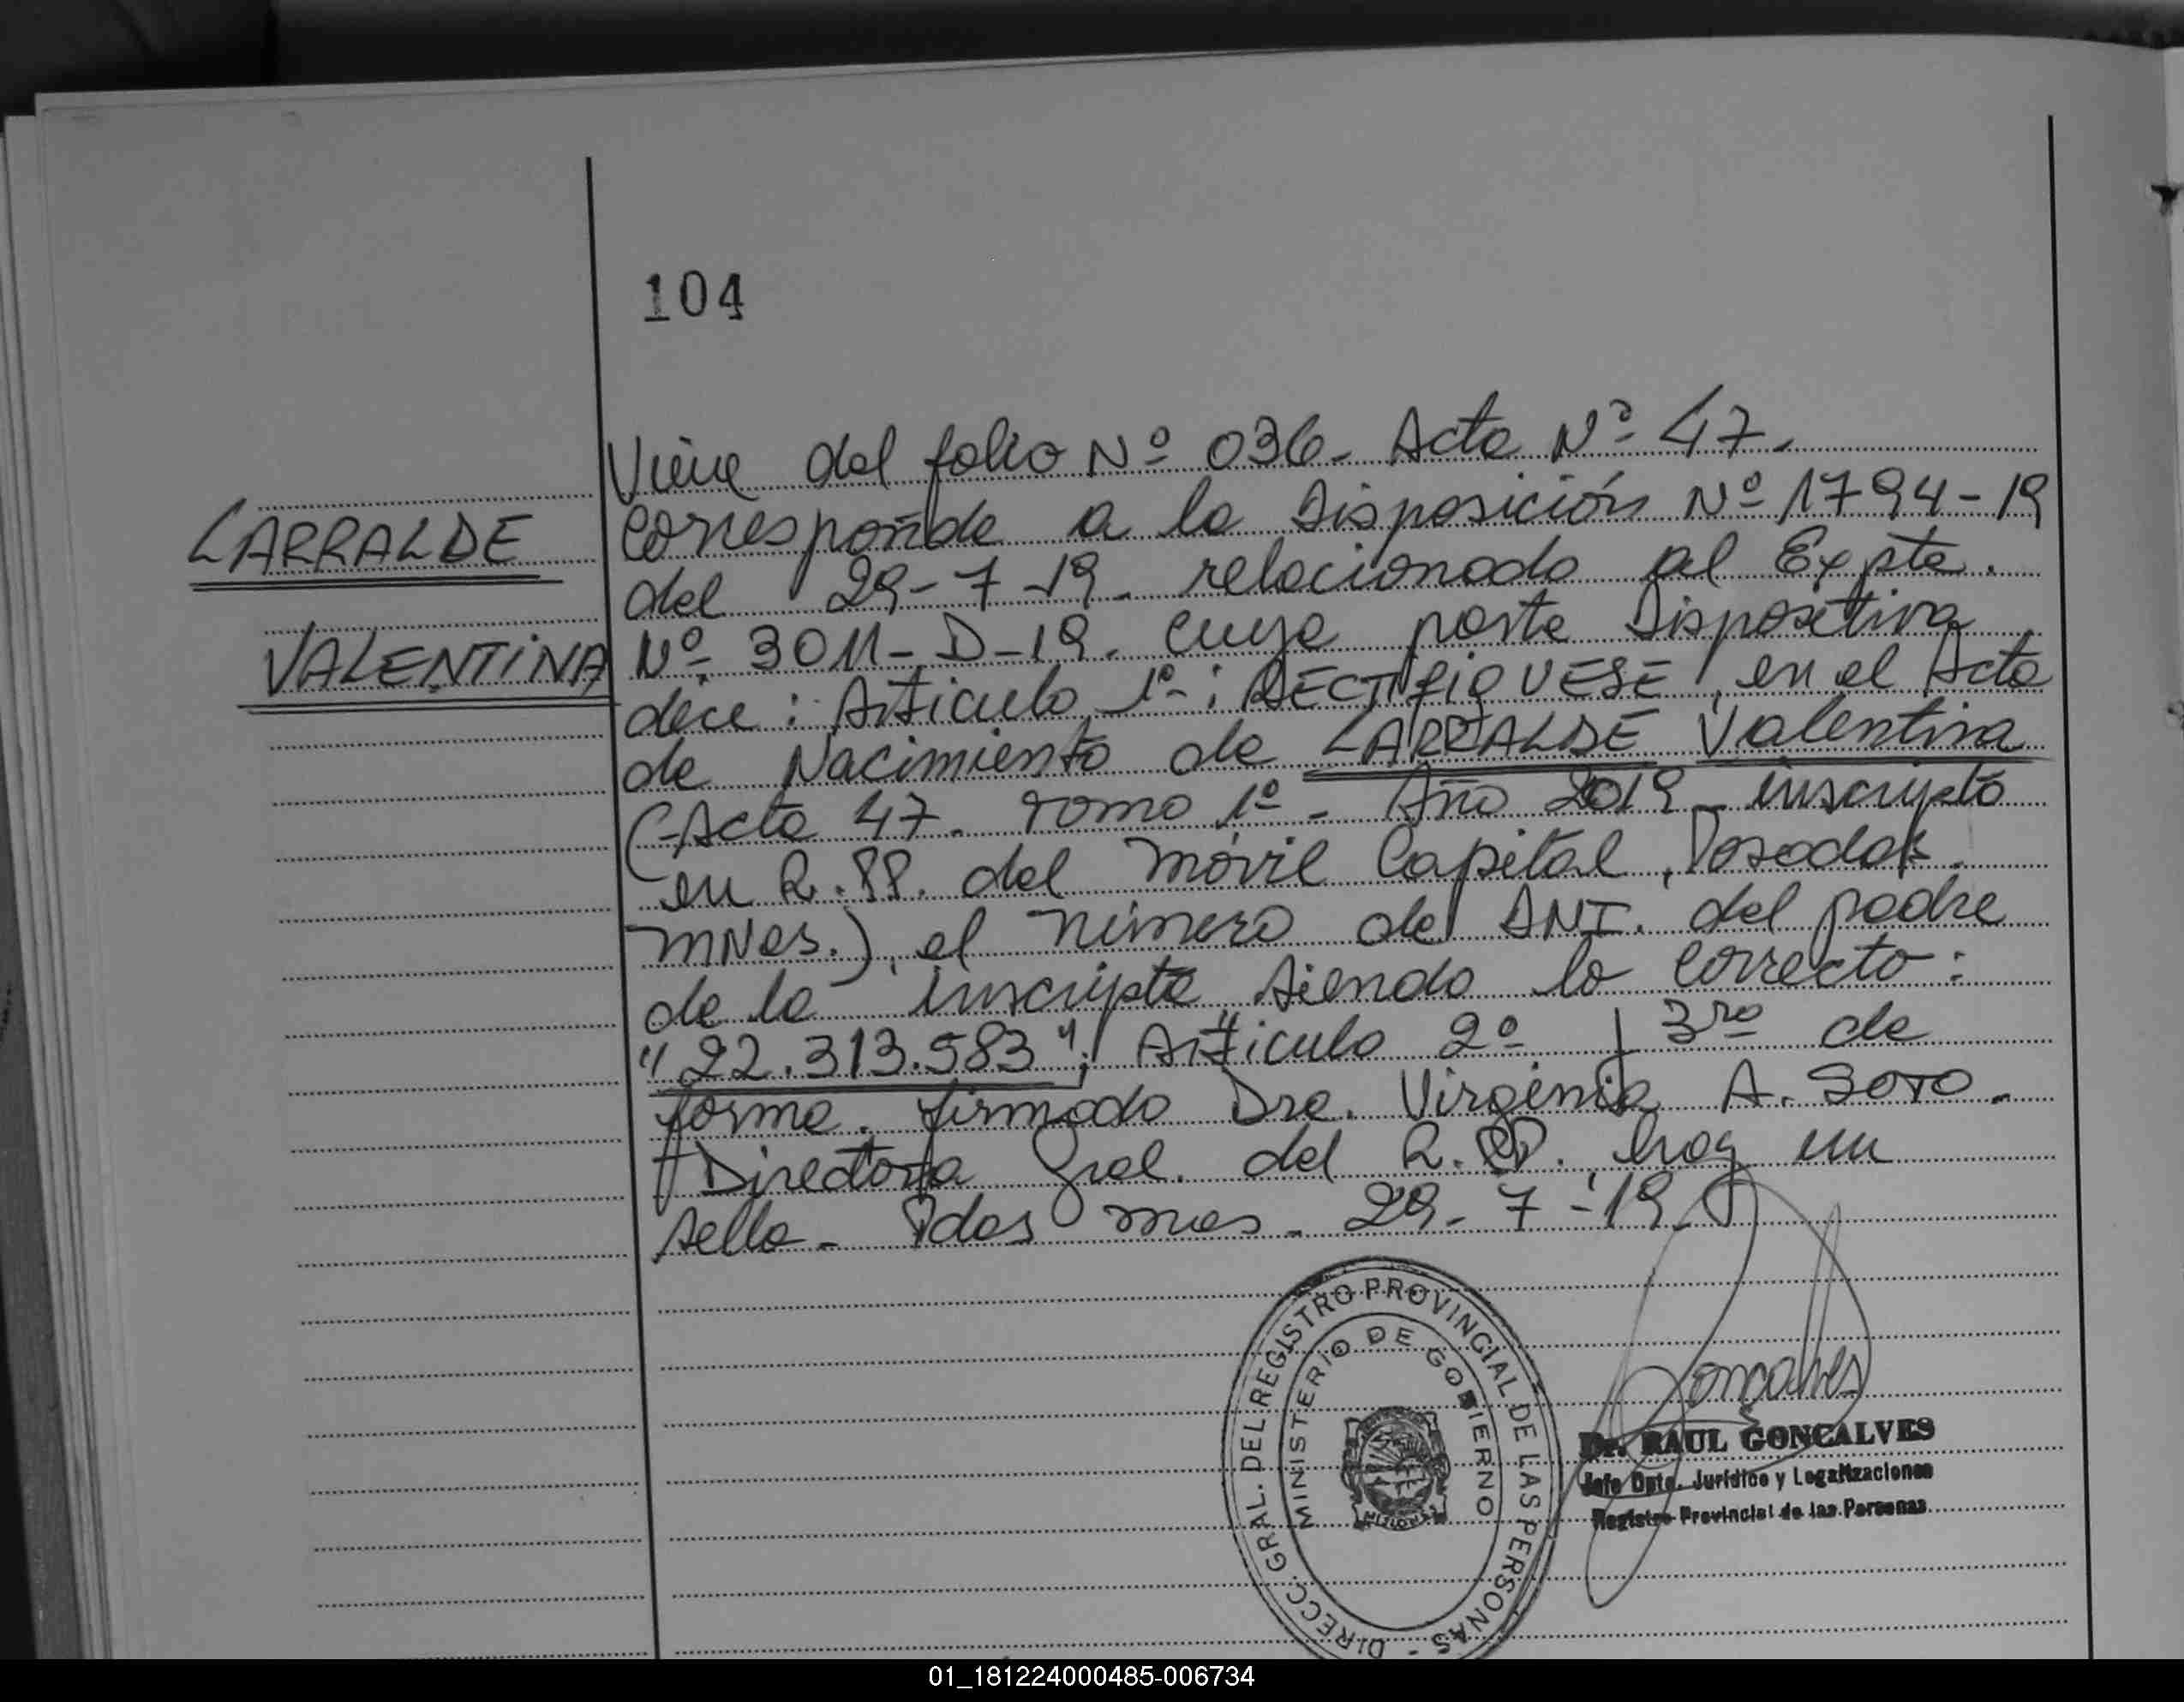 104
LARRALDE
VALENTINA
Viene del folio Nº 036. Acta Nº 47.
Corresponde a la Disposición Nº 1794-19
del 29-7-19. relacionado al Expte.
Nº 3011-D-19. cuya parte Dispositiva
dice: Artículo 1º: RECTIFIQUESE, en el Acta
de Nacimiento de LARRALDE Valentina
(Acta 47. Tomo 1º - Año 2019 - inscripto
en R.PP. del Móvil Capital, Posadas.
MNes.), el número de DNI. del padre
de la inscripta siendo lo correcto:
"22.313.583"; Artículo 2º y 3ro de
forma. firmado Dra. Virginia A. SOTO.
Directora Gral. del R.PP. hay un
sello. Pdas mnes. 29-7-19.
DIRECC. GRAL. DEL REGISTRO PROVINCIAL DE LAS PERSONAS -
MINISTERIO DE GOBIERNO
MISIONES
Goncalves
Dr. RAUL GONCALVES
Jefe Dpto. Jurídico y Legalizaciones
Registro Provincial de las Personas
01_181224000485-006734